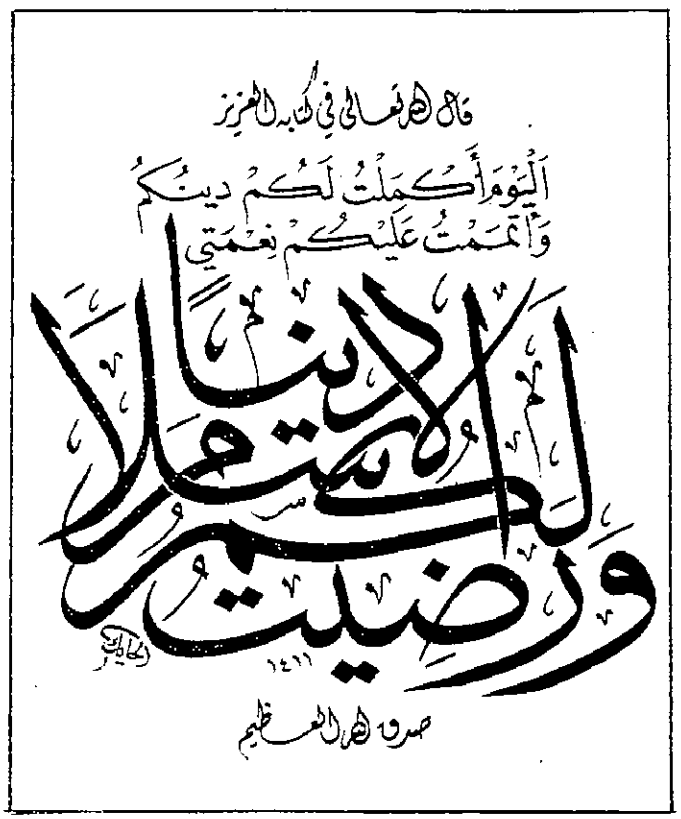 قال الله تعالى في كتابه العزيز
اَلْيَوْمَ أَكْمَلْتُ لَكُمْ دِينَكُمْ
وَأَتْمَمْتُ عَلَيْكُمْ نِعْمَتِي
ورضيت لكم الإسلام دينًا
١٤١١
صدق الله العظيم